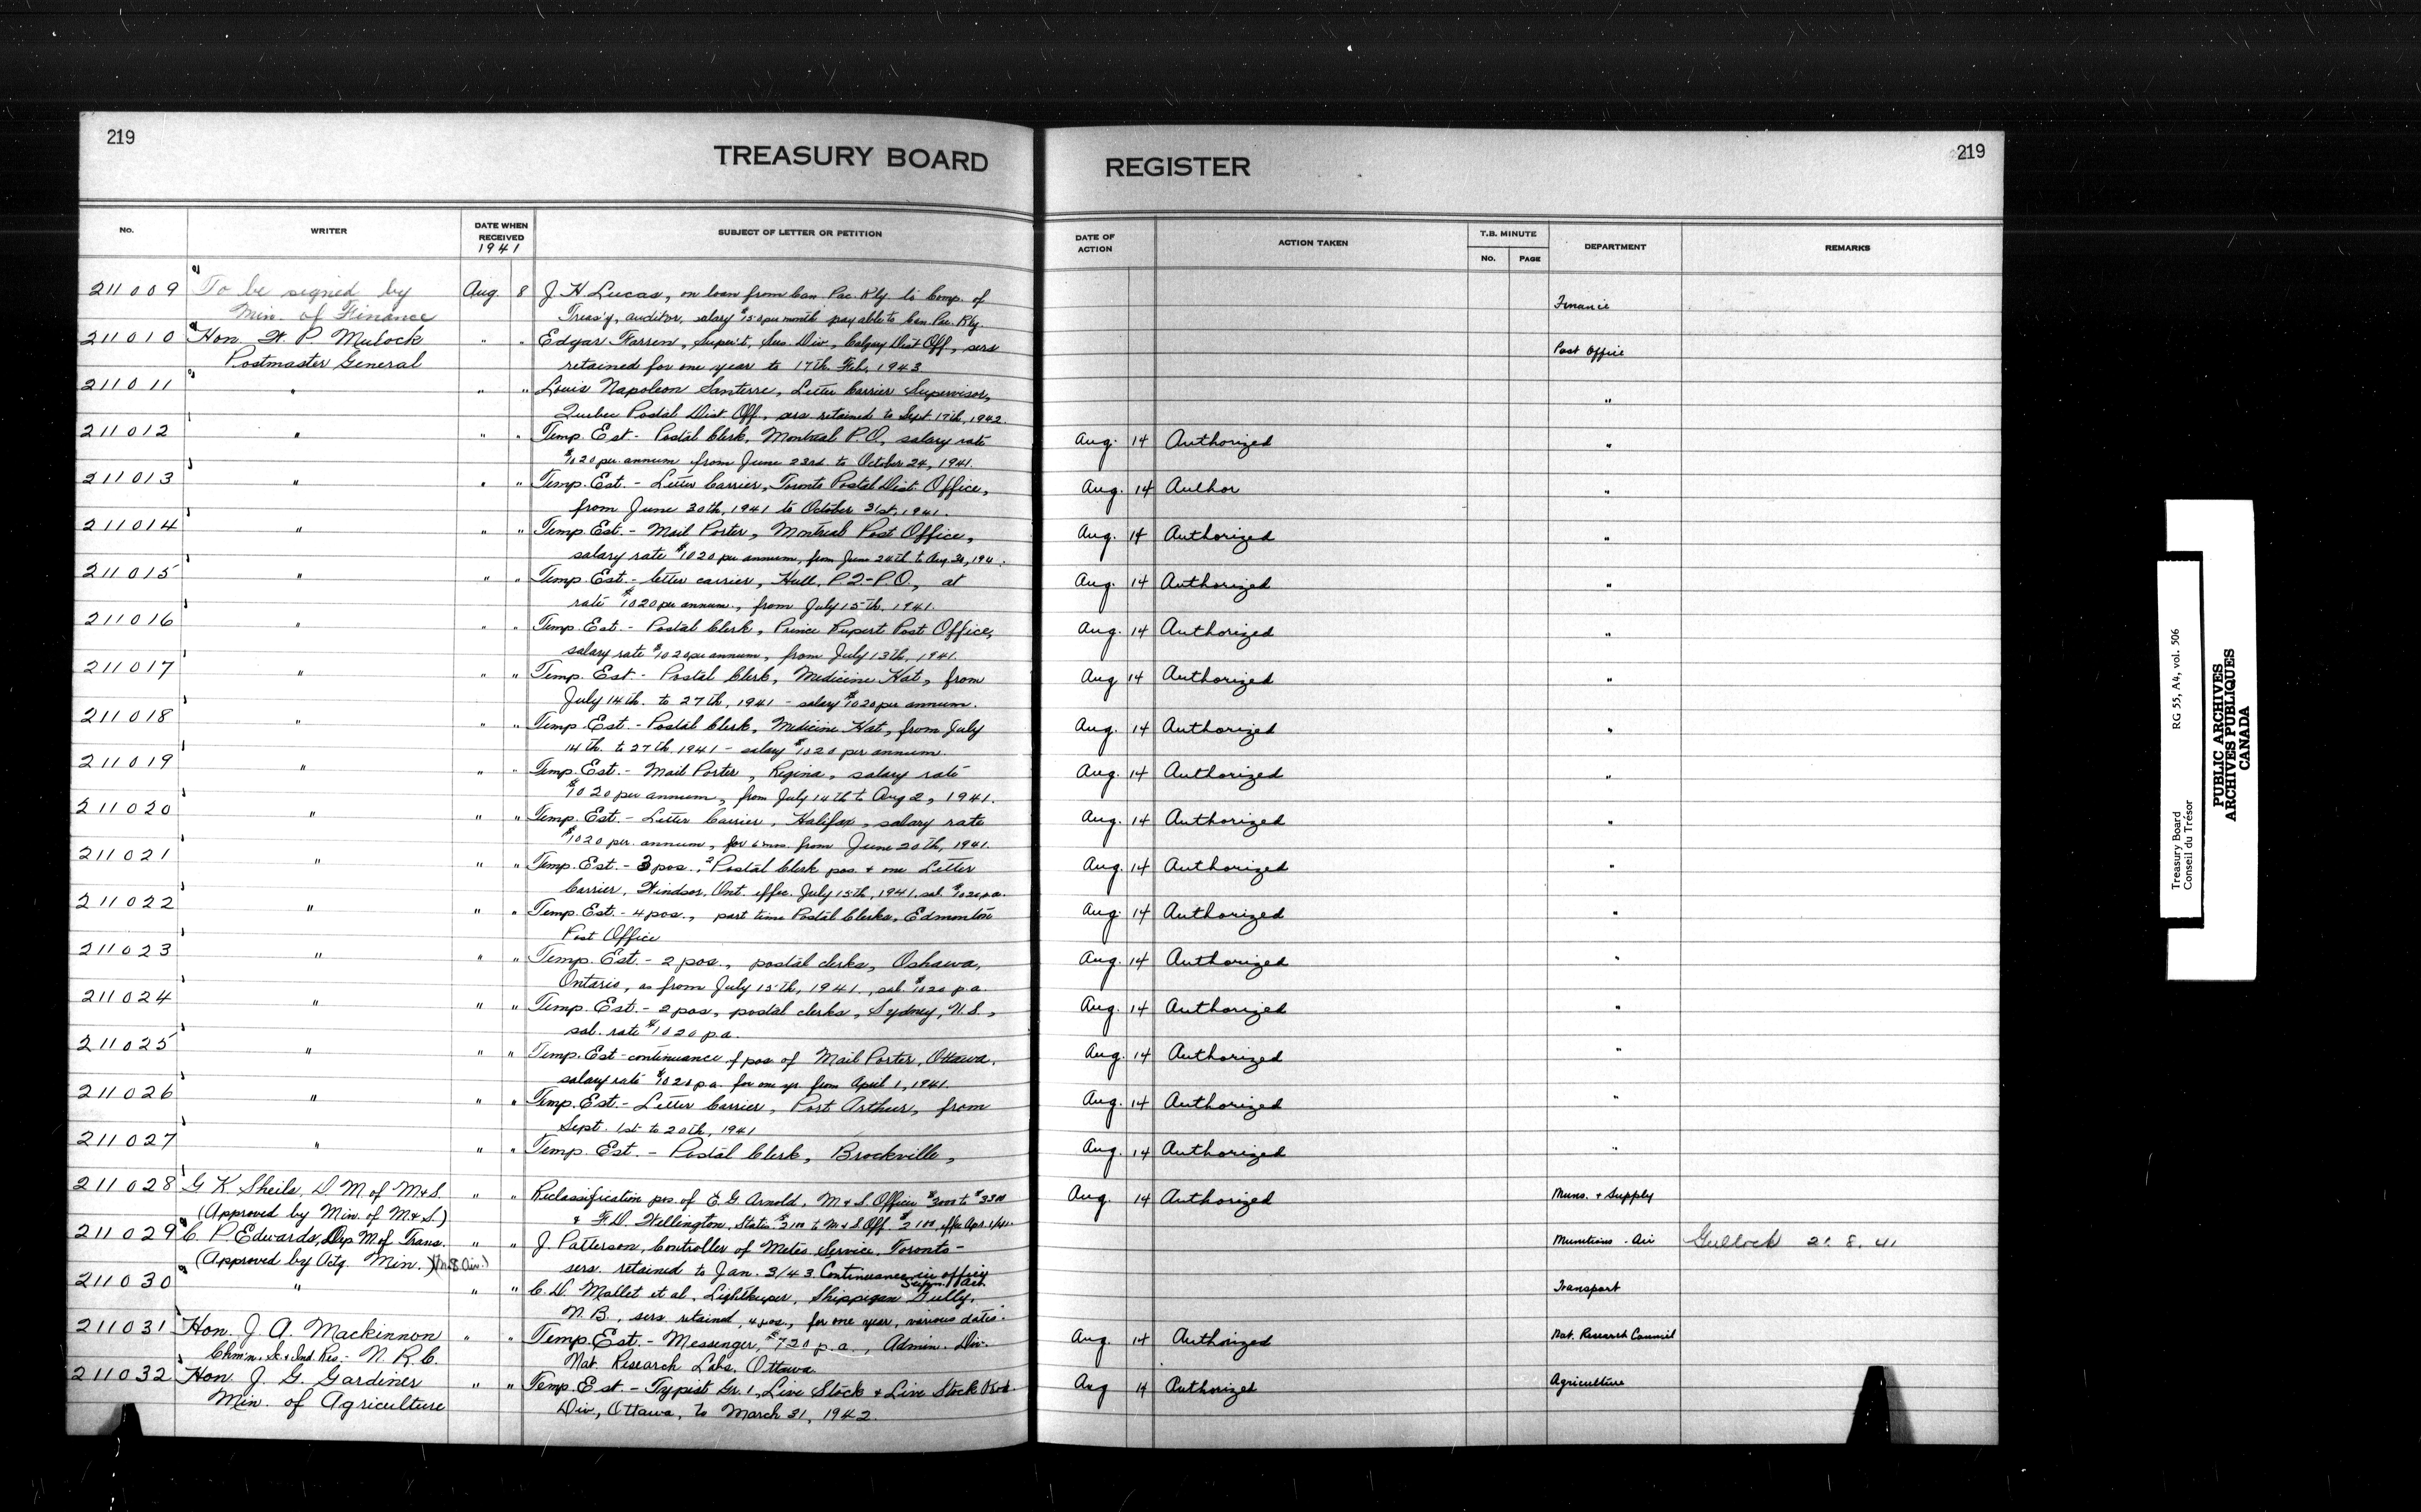 219
TREASURY BOARD
REGISTER
219
No.
WRITER
DATE WHEN RECEIVED
1941
SUBJECT OF LETTER OR PETITION
DATE OF ACTION
ACTION TAKEN
T.B. MINUTE
No.
PAGE
DEPARTMENT
REMARKS
211009 To be signed by Aug. 8 J. H. Lucas, on loan from Can. Pac. Rly. to Comp. of Finance
Min. of Finance Treas'y, auditor, salary $150 per month payable to Can. Pac. Rly.
211010 Hon. W. P. Mulock " " Edgar Farren, Super't, Ser. Div., Calgary Dist Off, sers Post Office
Postmaster General retained for one year to 17th Feb. 1943
211011 " " " Louis Napoleon Santerre, Letter Carrier Supervisor, "
Quebec Postal Dist Off., sers retained to Sept 17th, 1942.
211012 " " " Temp. Est - Postal Clerk, Montreal P.O, salary rate Aug. 14 Authorized "
$1020 per annum from June 23rd to October 24, 1941.
211013 " " " Temp. Est. - Letter Carrier, Toronto Postal Dist. Office, Aug. 14 Author "
from June 30th, 1941 to October 31st, 1941.
211014 " " " Temp. Est. - Mail Porter, Montreal Post Office, Aug. 14 Authorized "
salary rate $1020 per annum, from June 24th to Aug. 30, 194 .
211015 " " " Temp. Est. - letter carrier, Hull, P.Q-P.O, at Aug. 14 Authorized "
rate $1020 per annum, from July 15th, 1941.
211016 " " " Temp. Est. - Postal Clerk, Prince Rupert Post Office, Aug. 14 Authorized "
salary rate $1020 per annum, from July 13th, 1941.
211017 " " " Temp. Est - Postal Clerk, Medicine Hat, from Aug 14 Authorized "
July 14th. to 27th, 1941 - salary $1020 per annum.
211018 " " " Temp. Est - Postal Clerk, Medicine Hat, from July Aug. 14 Authorized "
14th. to 27th, 1941 - salary $1020 per annum.
211019 " " " Temp. Est. - Mail Porter, Regina, salary rate Aug. 14 Authorized "
$1020 per annum, from July 14th to Aug 2, 1941.
211020 " " " Temp. Est. - Letter Carrier, Halifax, salary rate Aug. 14 Authorized "
$1020 per annum, for 6 mos. from June 20th, 1941.
211021 " " " Temp. Est. - 3 pos., 2 Postal Clerk pos. + one Letter Aug. 14 Authorized "
Carrier, Windsor, Ont. effec. July 15th, 1941, sal. $1020 p.a.
211022 " " " Temp. Est. - 4 pos., part time Postal Clerks, Edmonton Aug. 14 Authorized "
Post Office
211023 " " " Temp. Est. - 2 pos., postal clerks, Oshawa, Aug. 14 Authorized "
Ontario, as from July 15th, 1941., sal. $1020 p.a.
211024 " " " Temp. Est. - 2 pos, postal clerks, Sydney, N.S., Aug. 14 Authorized "
sal. rate $1020 p.a.
211025 " " " Temp. Est - continuance of pos of Mail Porter, Ottawa, Aug. 14 Authorized "
salary rate $1020 p.a. for one yr. from April 1, 1941.
211026 " " " Temp. Est. - Letter Carrier, Port Arthur, from Aug. 14 Authorized "
Sept. 1st to 20th, 1941
211027 " " " Temp. Est. - Postal Clerk, Brockville, Aug. 14 Authorized "
211028 G K Sheils, D. M of M+S. " " Reclassification pos. of E. G. Arnold, M+S Officer $3000 to $3300 Aug. 14 Authorized Muns. + Supply
(Approved by Min. of M+S.) + F. D. Wellington, Statis. $2100 to M+S Off. $2100, effec Apr. 1/41.
211029 C. P. Edwards, Dep M of Trans. " " J. Patterson, Controller of Meteo. Service, Toronto - Munitions - Air 21. 8. 41
(Approved by Actg. Min.) sers. retained to Jan. 3/43. Continuance in office
211030 " " " C. D. Mallet et al, Lightkeeper, Shippigan Gully, Transport
N.B., sers. retained, 4 pos, for one year, various dates.
211031 Hon. J. A. Mackinnon " " Temp. Est. - Messenger, $720 p.a., Admin. Div. Aug. 14 Authorized Nat. Research Council
Chm'n. Sc. + Ind. Res. - N.R.C. Nat. Research Labs. Ottawa
211032 Hon. J. G. Gardiner " " Temp. Est. - Typist Gr. 1, Live Stock + Live Stock Prod. Aug 14 Authorized Agriculture
Min. of Agriculture Div., Ottawa, to March 31, 1942.
Treasury Board RG 55, A4, vol. 506
Conseil du Trésor
PUBLIC ARCHIVES
ARCHIVES PUBLIQUES
CANADA